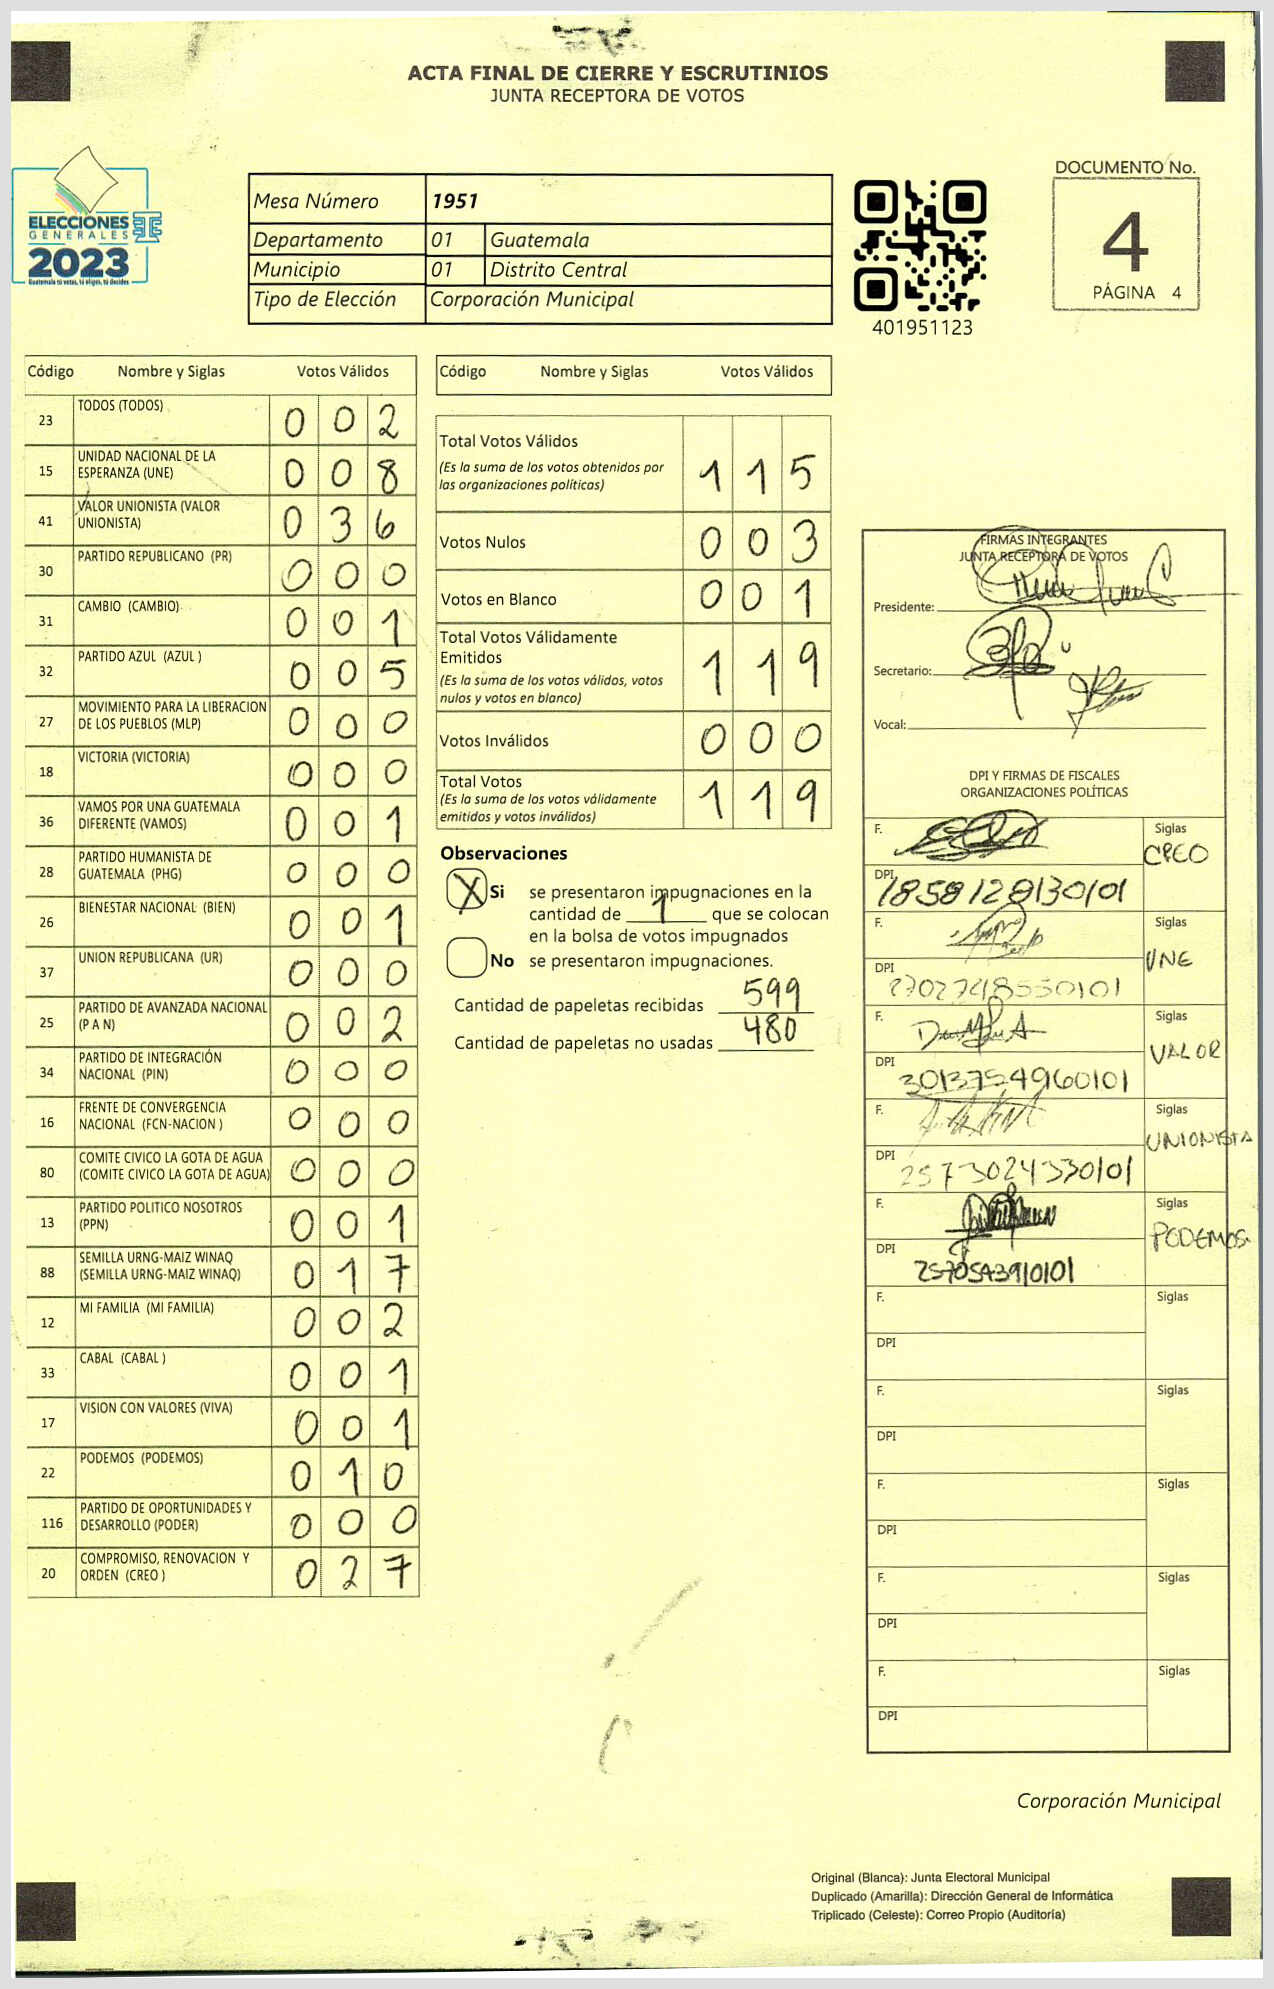 ACTA FINAL DE CIERRE Y ESCRUTINIOS
JUNTA RECEPTORA DE VOTOS
ELECCIONES
GENERALES
2023
Guatemala tú votas, tú eliges, tú decides
Mesa Número 1951
Departamento 01 Guatemala
Municipio 01 Distrito Central
Tipo de Elección Corporación Municipal
401951123
DOCUMENTO No.
4
PÁGINA 4
Código Nombre y Siglas Votos Válidos
23 TODOS (TODOS) 0 0 2
15 UNIDAD NACIONAL DE LA
ESPERANZA (UNE) 0 0 8
41 VALOR UNIONISTA (VALOR
UNIONISTA) 0 3 6
30 PARTIDO REPUBLICANO (PR) 0 0 0
31 CAMBIO (CAMBIO) 0 0 1
32 PARTIDO AZUL (AZUL ) 0 0 5
27 MOVIMIENTO PARA LA LIBERACION
DE LOS PUEBLOS (MLP) 0 0 0
18 VICTORIA (VICTORIA) 0 0 0
36 VAMOS POR UNA GUATEMALA
DIFERENTE (VAMOS) 0 0 1
28 PARTIDO HUMANISTA DE
GUATEMALA (PHG) 0 0 0
26 BIENESTAR NACIONAL (BIEN) 0 0 1
37 UNION REPUBLICANA (UR) 0 0 0
25 PARTIDO DE AVANZADA NACIONAL
(P A N) 0 0 2
34 PARTIDO DE INTEGRACIÓN
NACIONAL (PIN) 0 0 0
16 FRENTE DE CONVERGENCIA
NACIONAL (FCN-NACION ) 0 0 0
80 COMITE CIVICO LA GOTA DE AGUA
(COMITE CIVICO LA GOTA DE AGUA) 0 0 0
13 PARTIDO POLITICO NOSOTROS
(PPN) 0 0 1
88 SEMILLA URNG-MAIZ WINAQ
(SEMILLA URNG-MAIZ WINAQ) 0 1 7
12 MI FAMILIA (MI FAMILIA) 0 0 2
33 CABAL (CABAL ) 0 0 1
17 VISION CON VALORES (VIVA) 0 0 1
22 PODEMOS (PODEMOS) 0 1 0
116 PARTIDO DE OPORTUNIDADES Y
DESARROLLO (PODER) 0 0 0
20 COMPROMISO, RENOVACION Y
ORDEN (CREO ) 0 2 7
Código Nombre y Siglas Votos Válidos
Total Votos Válidos
(Es la suma de los votos obtenidos por
las organizaciones políticas) 1 1 5
Votos Nulos 0 0 3
Votos en Blanco 0 0 1
Total Votos Válidamente
Emitidos
(Es la suma de los votos válidos, votos
nulos y votos en blanco) 1 1 9
Votos Inválidos 0 0 0
Total Votos
(Es la suma de los votos válidamente
emitidos y votos inválidos) 1 1 9
Observaciones
X Si se presentaron impugnaciones en la
cantidad de 1 que se colocan
en la bolsa de votos impugnados
No se presentaron impugnaciones.
Cantidad de papeletas recibidas 599
Cantidad de papeletas no usadas 480
FIRMAS INTEGRANTES
JUNTA RECEPTORA DE VOTOS
Presidente:
Secretario:
Vocal:
DPI Y FIRMAS DE FISCALES
ORGANIZACIONES POLÍTICAS
F. Siglas
CREO
DPI 1858128130101
F. Siglas
UNE
DPI
F. Siglas
VALOR
DPI 3013754960101
F. Siglas
UNIONISTA
DPI 2573024330101
F. Siglas
PODEMOS
DPI 2570543910101
F. Siglas
DPI
F. Siglas
DPI
F. Siglas
DPI
F. Siglas
DPI
F. Siglas
DPI
Corporación Municipal
Original (Blanca): Junta Electoral Municipal
Duplicado (Amarilla): Dirección General de Informática
Triplicado (Celeste): Correo Propio (Auditoría)